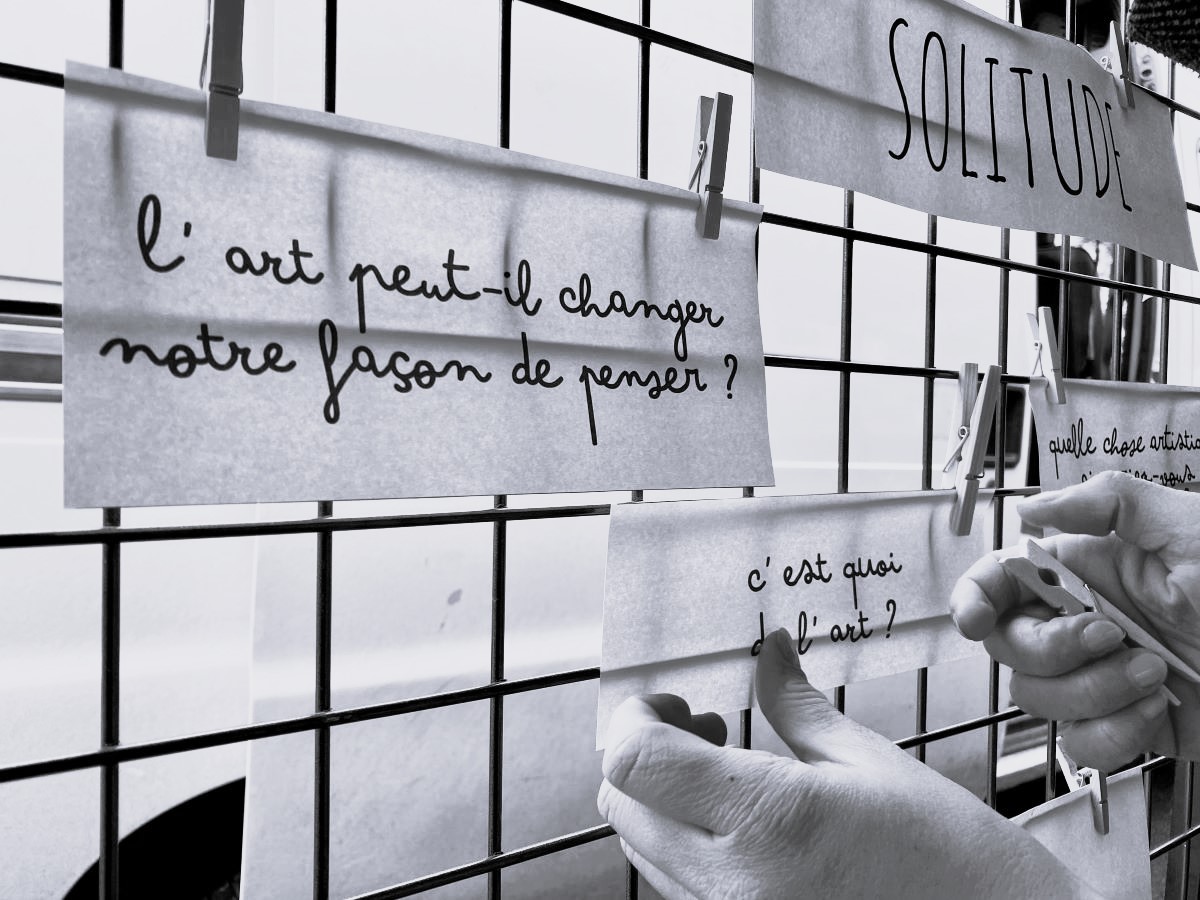 SOLITUDE
l'art peut-il changer
notre façon de penser ?
quelle chose
c'est quoi
l'art ?